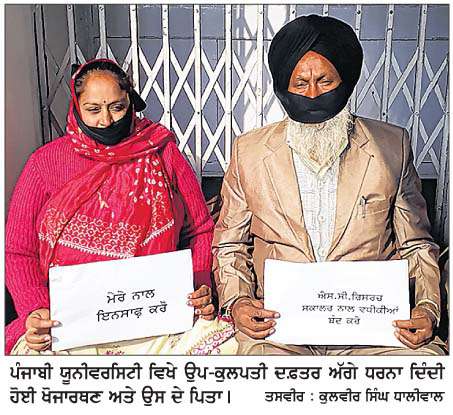 ਮੇਰੇ ਨਾਲ
ਇਨਸਾਫ਼ ਕਰੋ
ਐਸ.ਸੀ.ਰਿਸਰਚ
ਸਕਾਲਰ ਨਾਲ ਵਧੀਕੀਆਂ
ਬੰਦ ਕਰੋ
ਪੰਜਾਬੀ ਯੂਨੀਵਰਸਿਟੀ ਵਿਖੇ ਉਪ-ਕੁਲਪਤੀ ਦਫ਼ਤਰ ਅੱਗੇ ਧਰਨਾ ਦਿੰਦੀ
ਹੋਈ ਖੋਜਾਰਥਣ ਅਤੇ ਉਸ ਦੇ ਪਿਤਾ। ਤਸਵੀਰ : ਕੁਲਵੀਰ ਸਿੰਘ ਧਾਲੀਵਾਲ